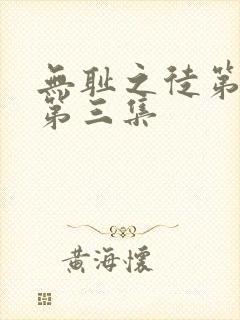 無耻之徒第
第三集
黄海懷